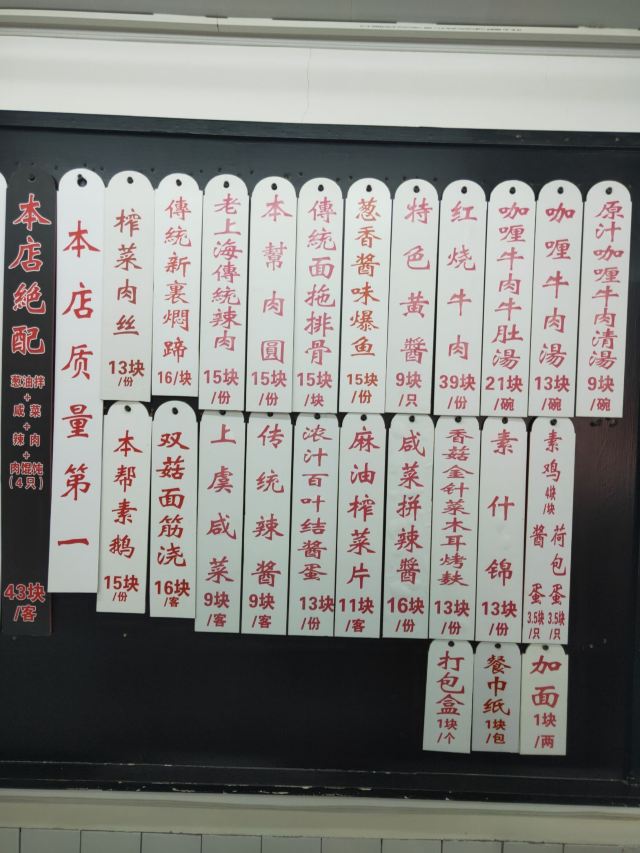 本店絕配
葱油拌
+
咸菜
+
辣肉
+
肉馄炖
(4只)
43块
/客
本店质量第一
榨菜肉丝
13块
/份
傳統新裏焖蹄
16/块
老上海傳統辣肉
15块
/份
本幫肉圓
15块
/份
傳統面拖排骨
15块
/块
葱香醬味爆鱼
15块
/份
特色黄醬
9块
/只
红烧牛肉
39块
/份
咖喱牛肉牛肚湯
21块
/碗
咖喱牛肉湯
13块
/碗
原汁咖喱牛肉清湯
9块
/碗
本帮素鹅
15块
/份
双菇面筋浇
16块
/客
上虞咸菜
9块
/客
传统辣酱
9块
/客
浓汁百叶结酱蛋
13块
/份
麻油榨菜片
11块
/客
咸菜拼辣酱
16块
/份
香菇金针菜木耳烤麸
13块
/份
素什锦
13块
/份
素鸡
4块/块
酱蛋
3.5块
/只
荷包蛋
3.5块
/只
打包盒
1块
/个
餐巾纸
1块
/包
加面
1块
/两